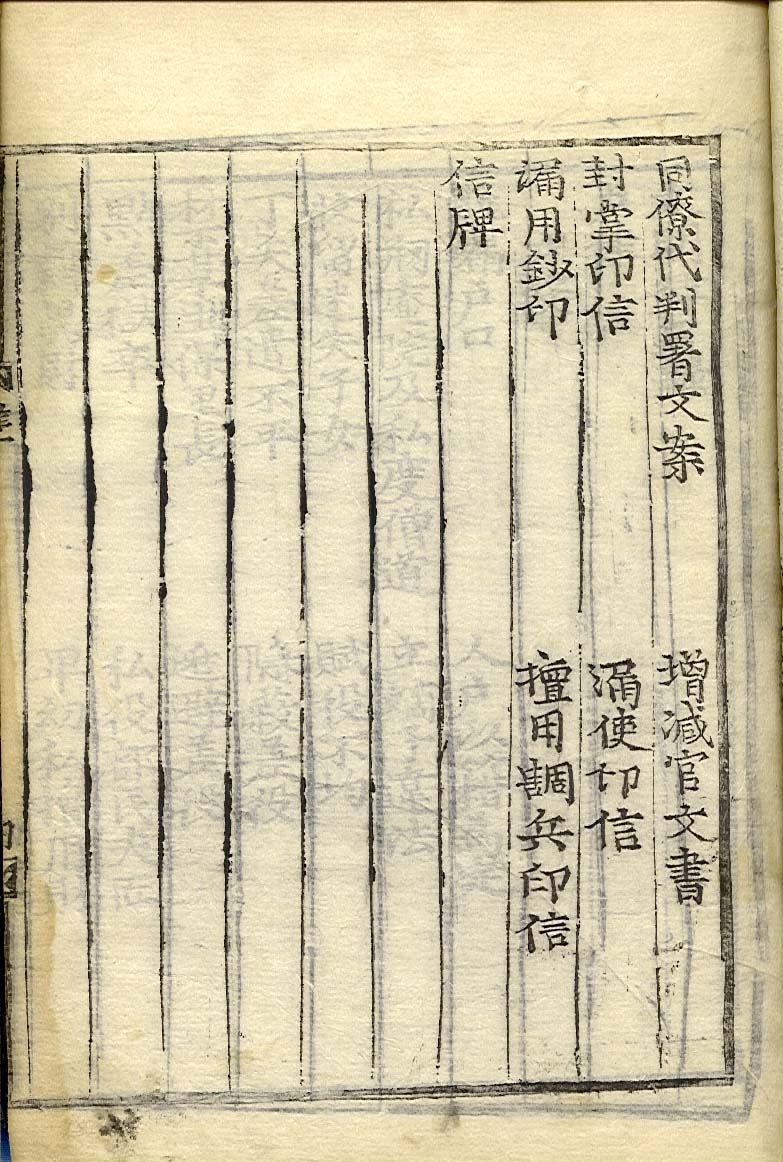 同僚代判署文案　增減官文書
封掌印信　漏使印信
漏用鈔印　擅用調兵印信
信牌